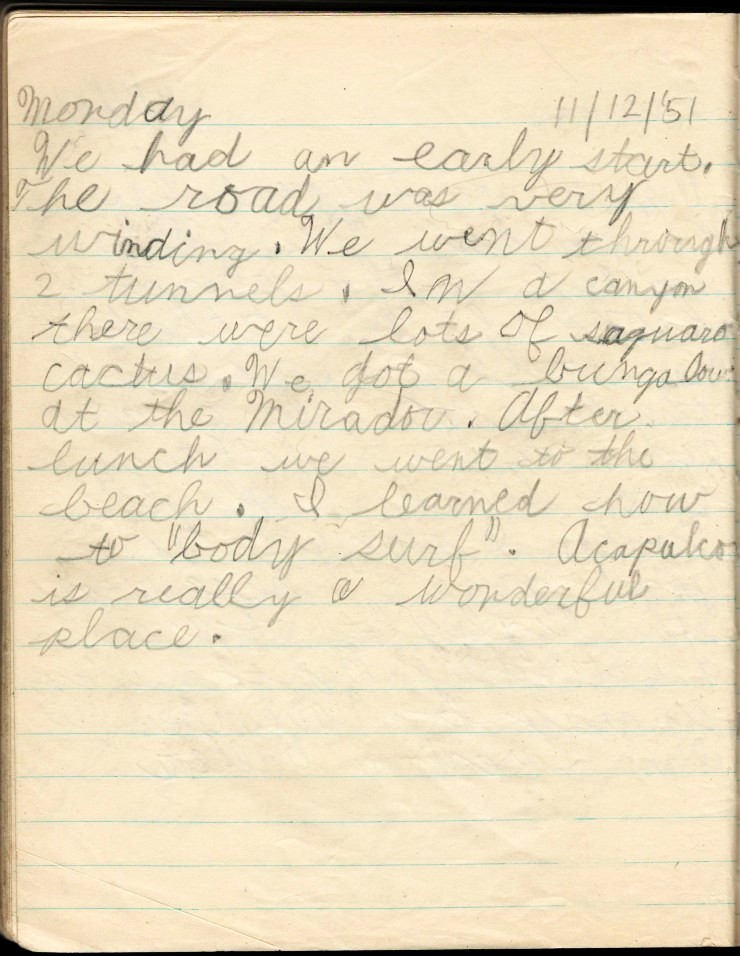 Monday 11/12/'51
We had an early start.
The road was very
winding. We went through
2 tunnels. In a canyon
there were lots of saguaro
cactus. We got a bungalow
at the Mirador. After
lunch we went to the
beach. I learned how
to "body surf". Acapulco
is really a wonderful
place.